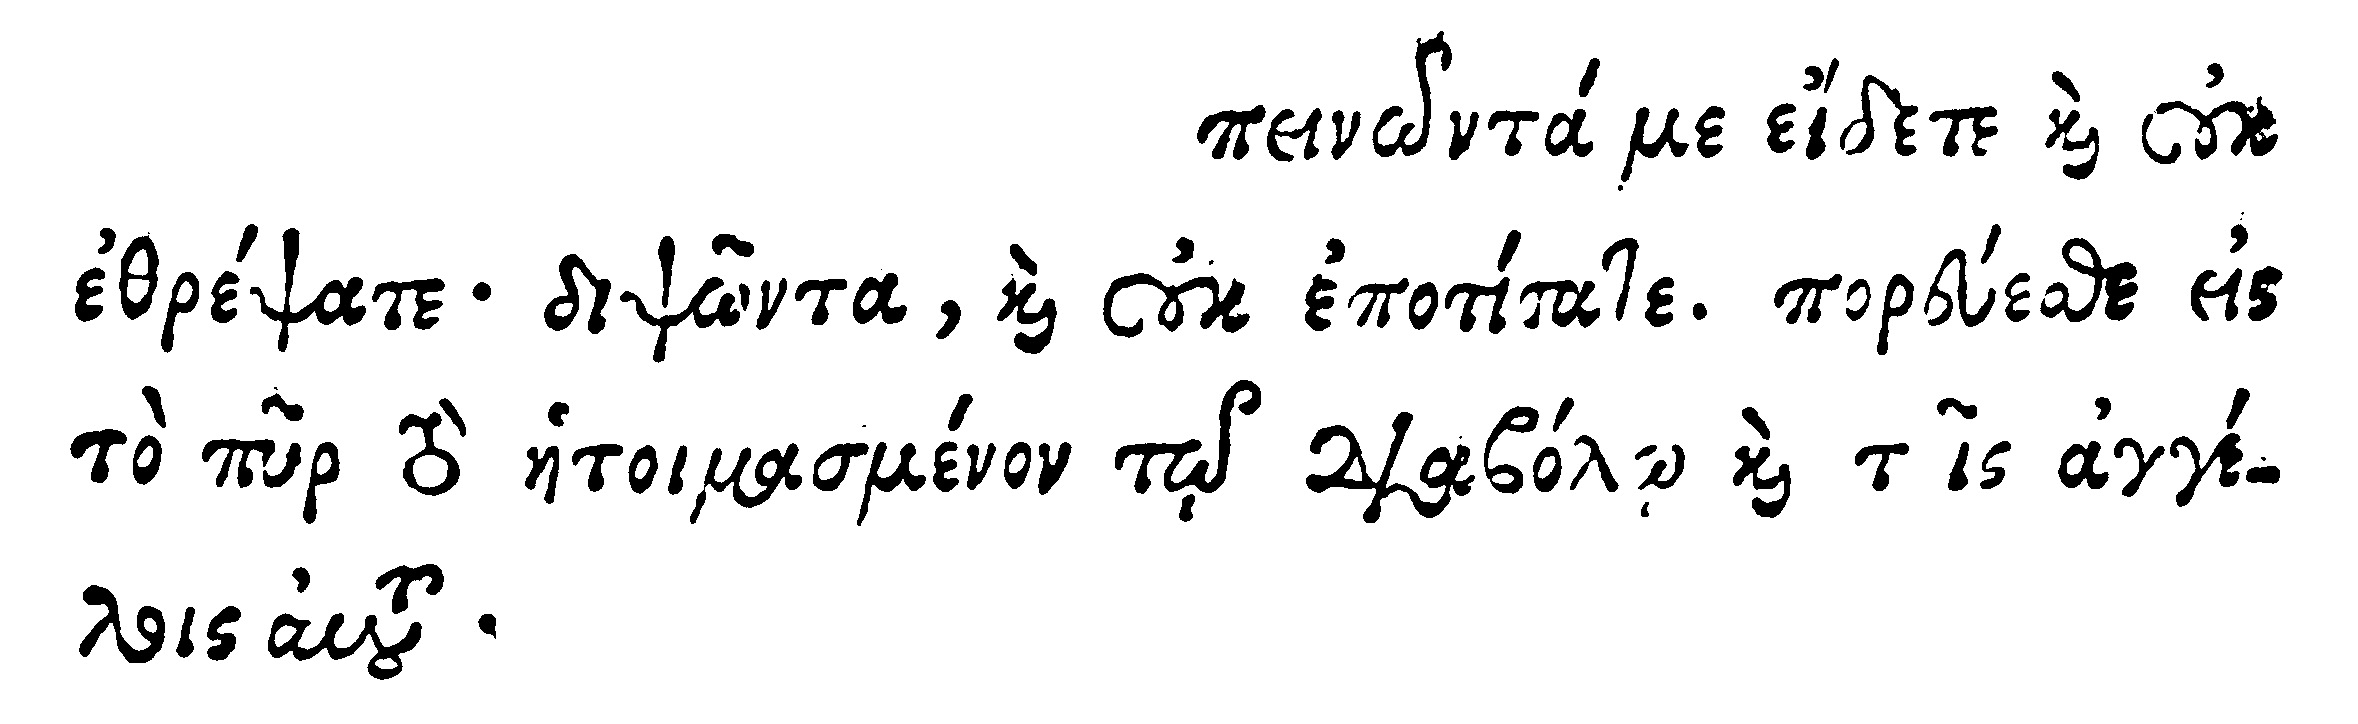 πεινῶντά με εἴδετε καὶ οὐκ
ἐθρέψατε· διψῶντα, καὶ οὐκ ἐποτίσατε. πορεύεσθε εἰς
τὸ πῦρ τὸ ἡτοιμασμένον τῷ Διαβόλῳ καὶ τοῖς ἀγγέ-
λοις ἀυτοῦ.